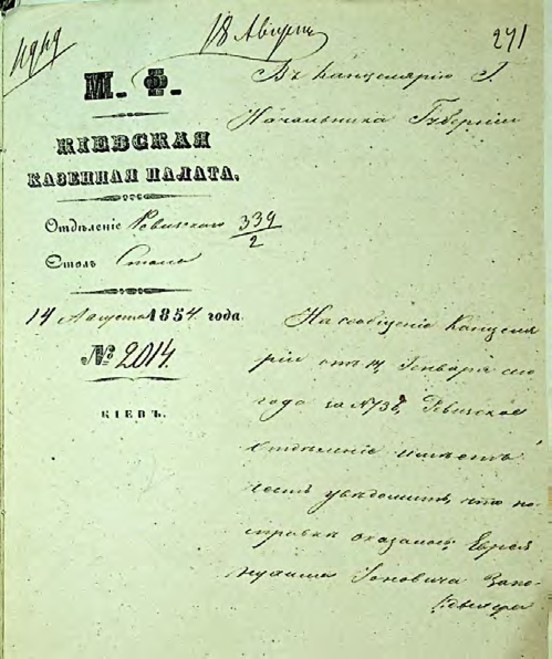 18 Августа
241
М. Ф.
КІЕВСКАЯ
КАЗЕННАЯ ПАЛАТА.
Отдѣленіе Ревизского 339/2
Столъ
14 Августа 1854 года
№ 2014.
КІЕВЪ.
Въ Канцелярію Г.
Начальника Губерніи
На сообщеніе Канцеля
ріи отъ Генваря сего
года за № Ревизское
Отдѣленіе имѣетъ
честь увѣдомить, что по
справкѣ оказалось: Еврей
Іоновича